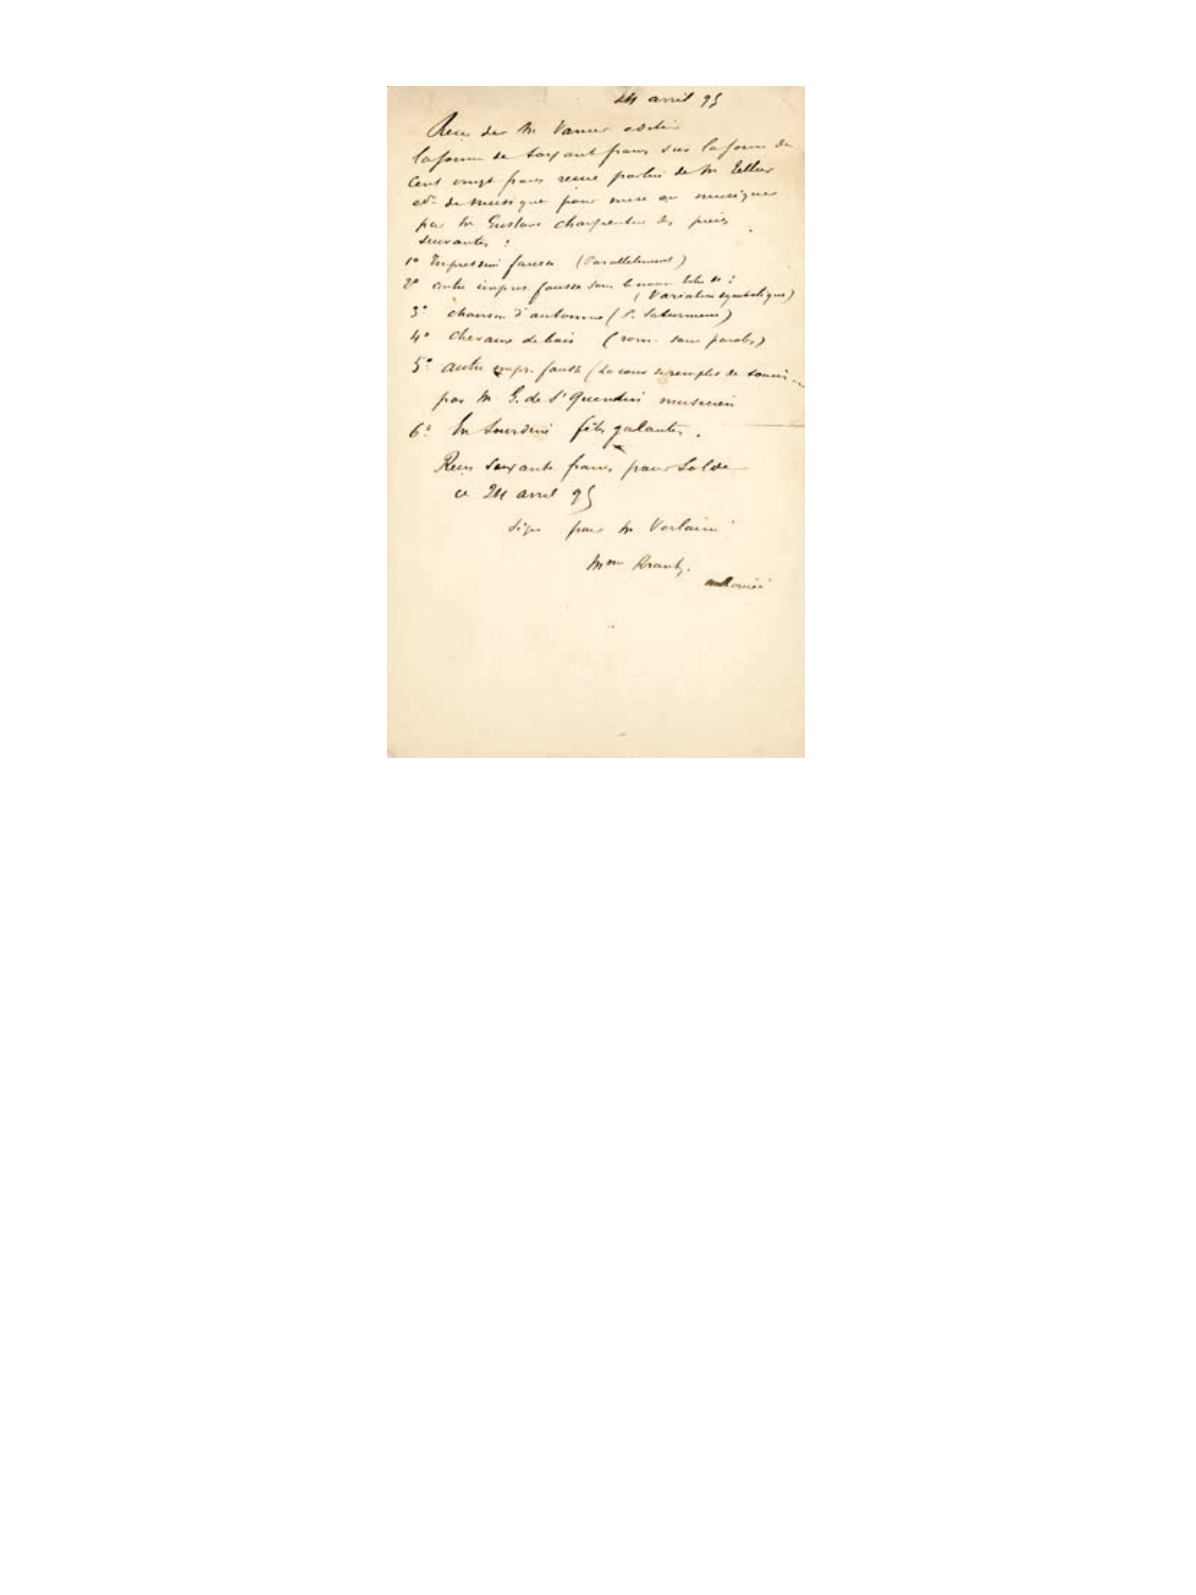 24 avril 95
Reçu de M Vanier editeur
la somme de soixante francs sur la somme de
cent vingt francs reçue par lui de M Tellier
edr de musique pour mise en musique
par M Gustave Charpentier des pièces
suivantes :
1° Impression fausse (Parallelement)
2° autre impres. fausse sous le nom de :
(Variation symbolique)
3° chanson d'automne (P. Saturniens)
4° Chevaux de bois (rom. sans paroles)
5° autre impr. fausse (
par M G. de St Quentin musicien
6° En Sourdine fêtes galantes.
Reçu soixante francs pour solde
ce 24 avril 95
signé pour M Verlaine
Mme Krantz.